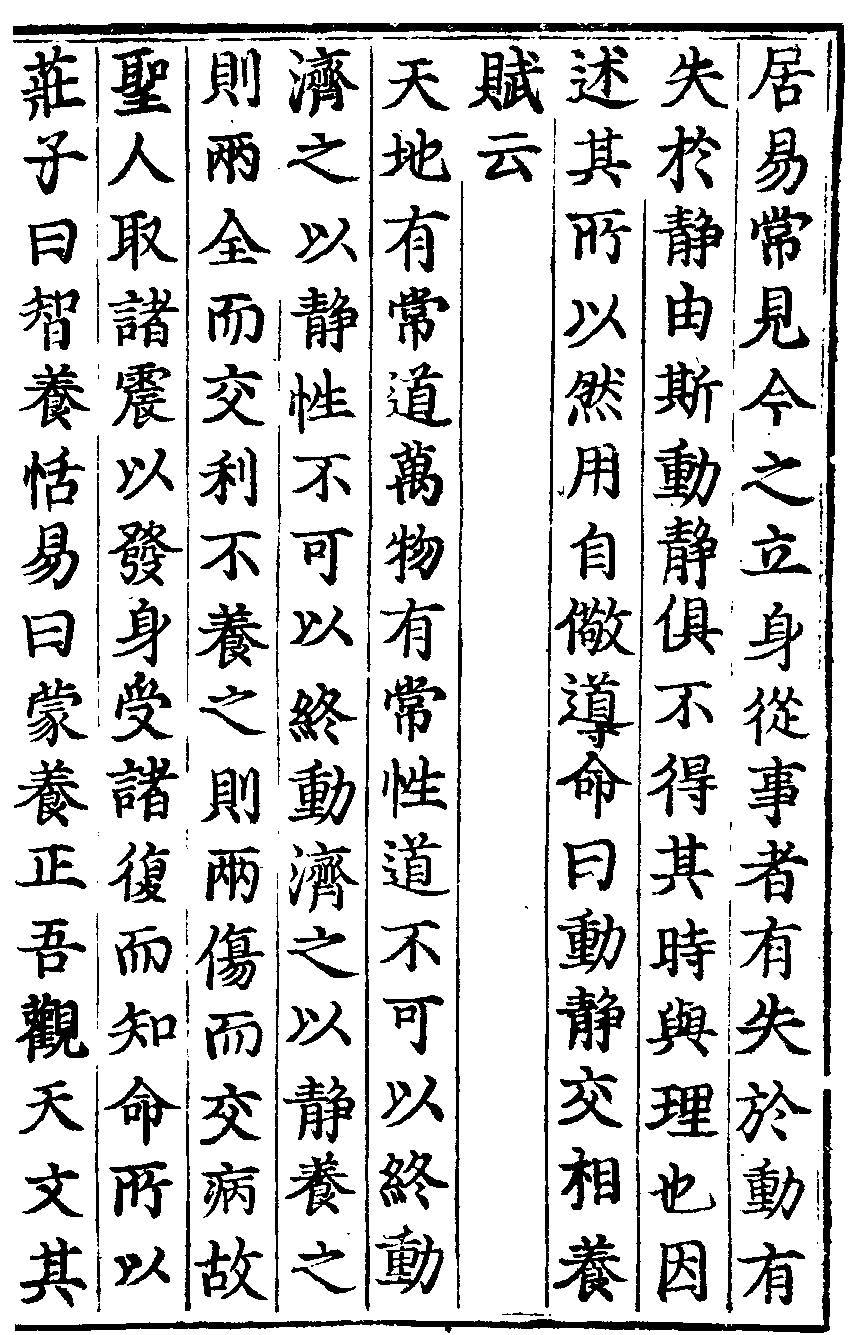 居易常見今之立身從事者有失於動有
失於静由斯動静俱不得其時與理也因
述其所以然用自儆導命曰動静交相養
賦云
天地有常道萬物有常性道不可以終動
濟之以静性不可以終動濟之以静養之
則兩全而交利不養之則兩傷而交病故
聖人取諸震以發身受諸復而知命所以
莊子曰智養恬易曰蒙養正吾觀天文其